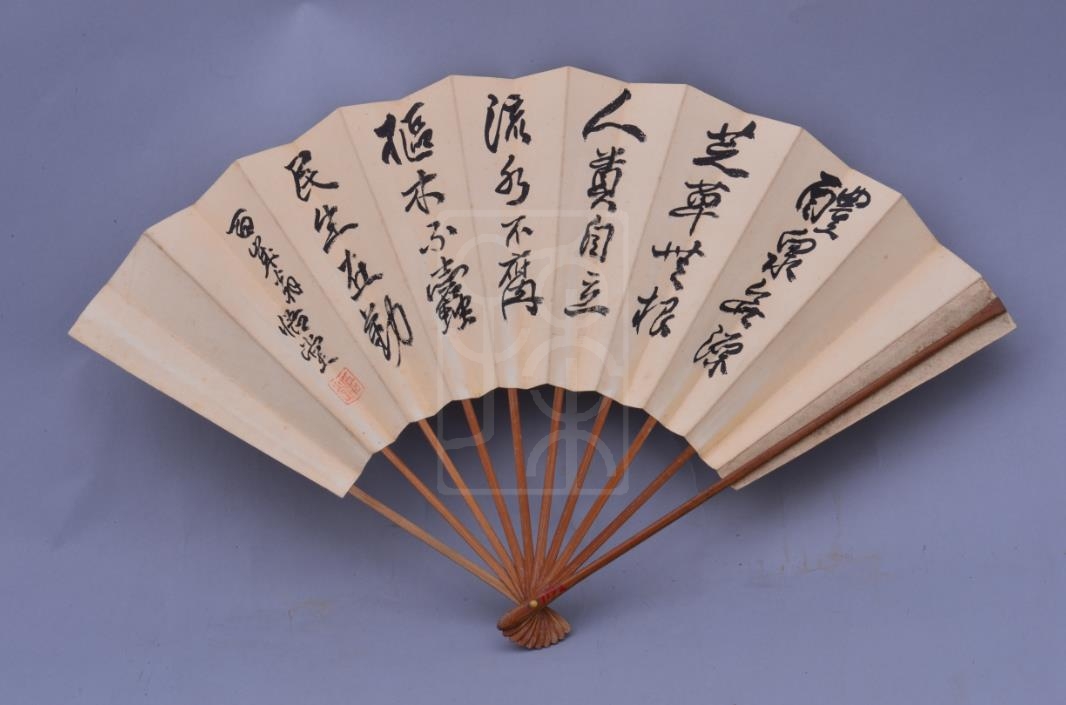 醴泉無源
芝草無根
人貴自立
流水不腐
樞木不蠹
民生在勤
百歲翁悟堂